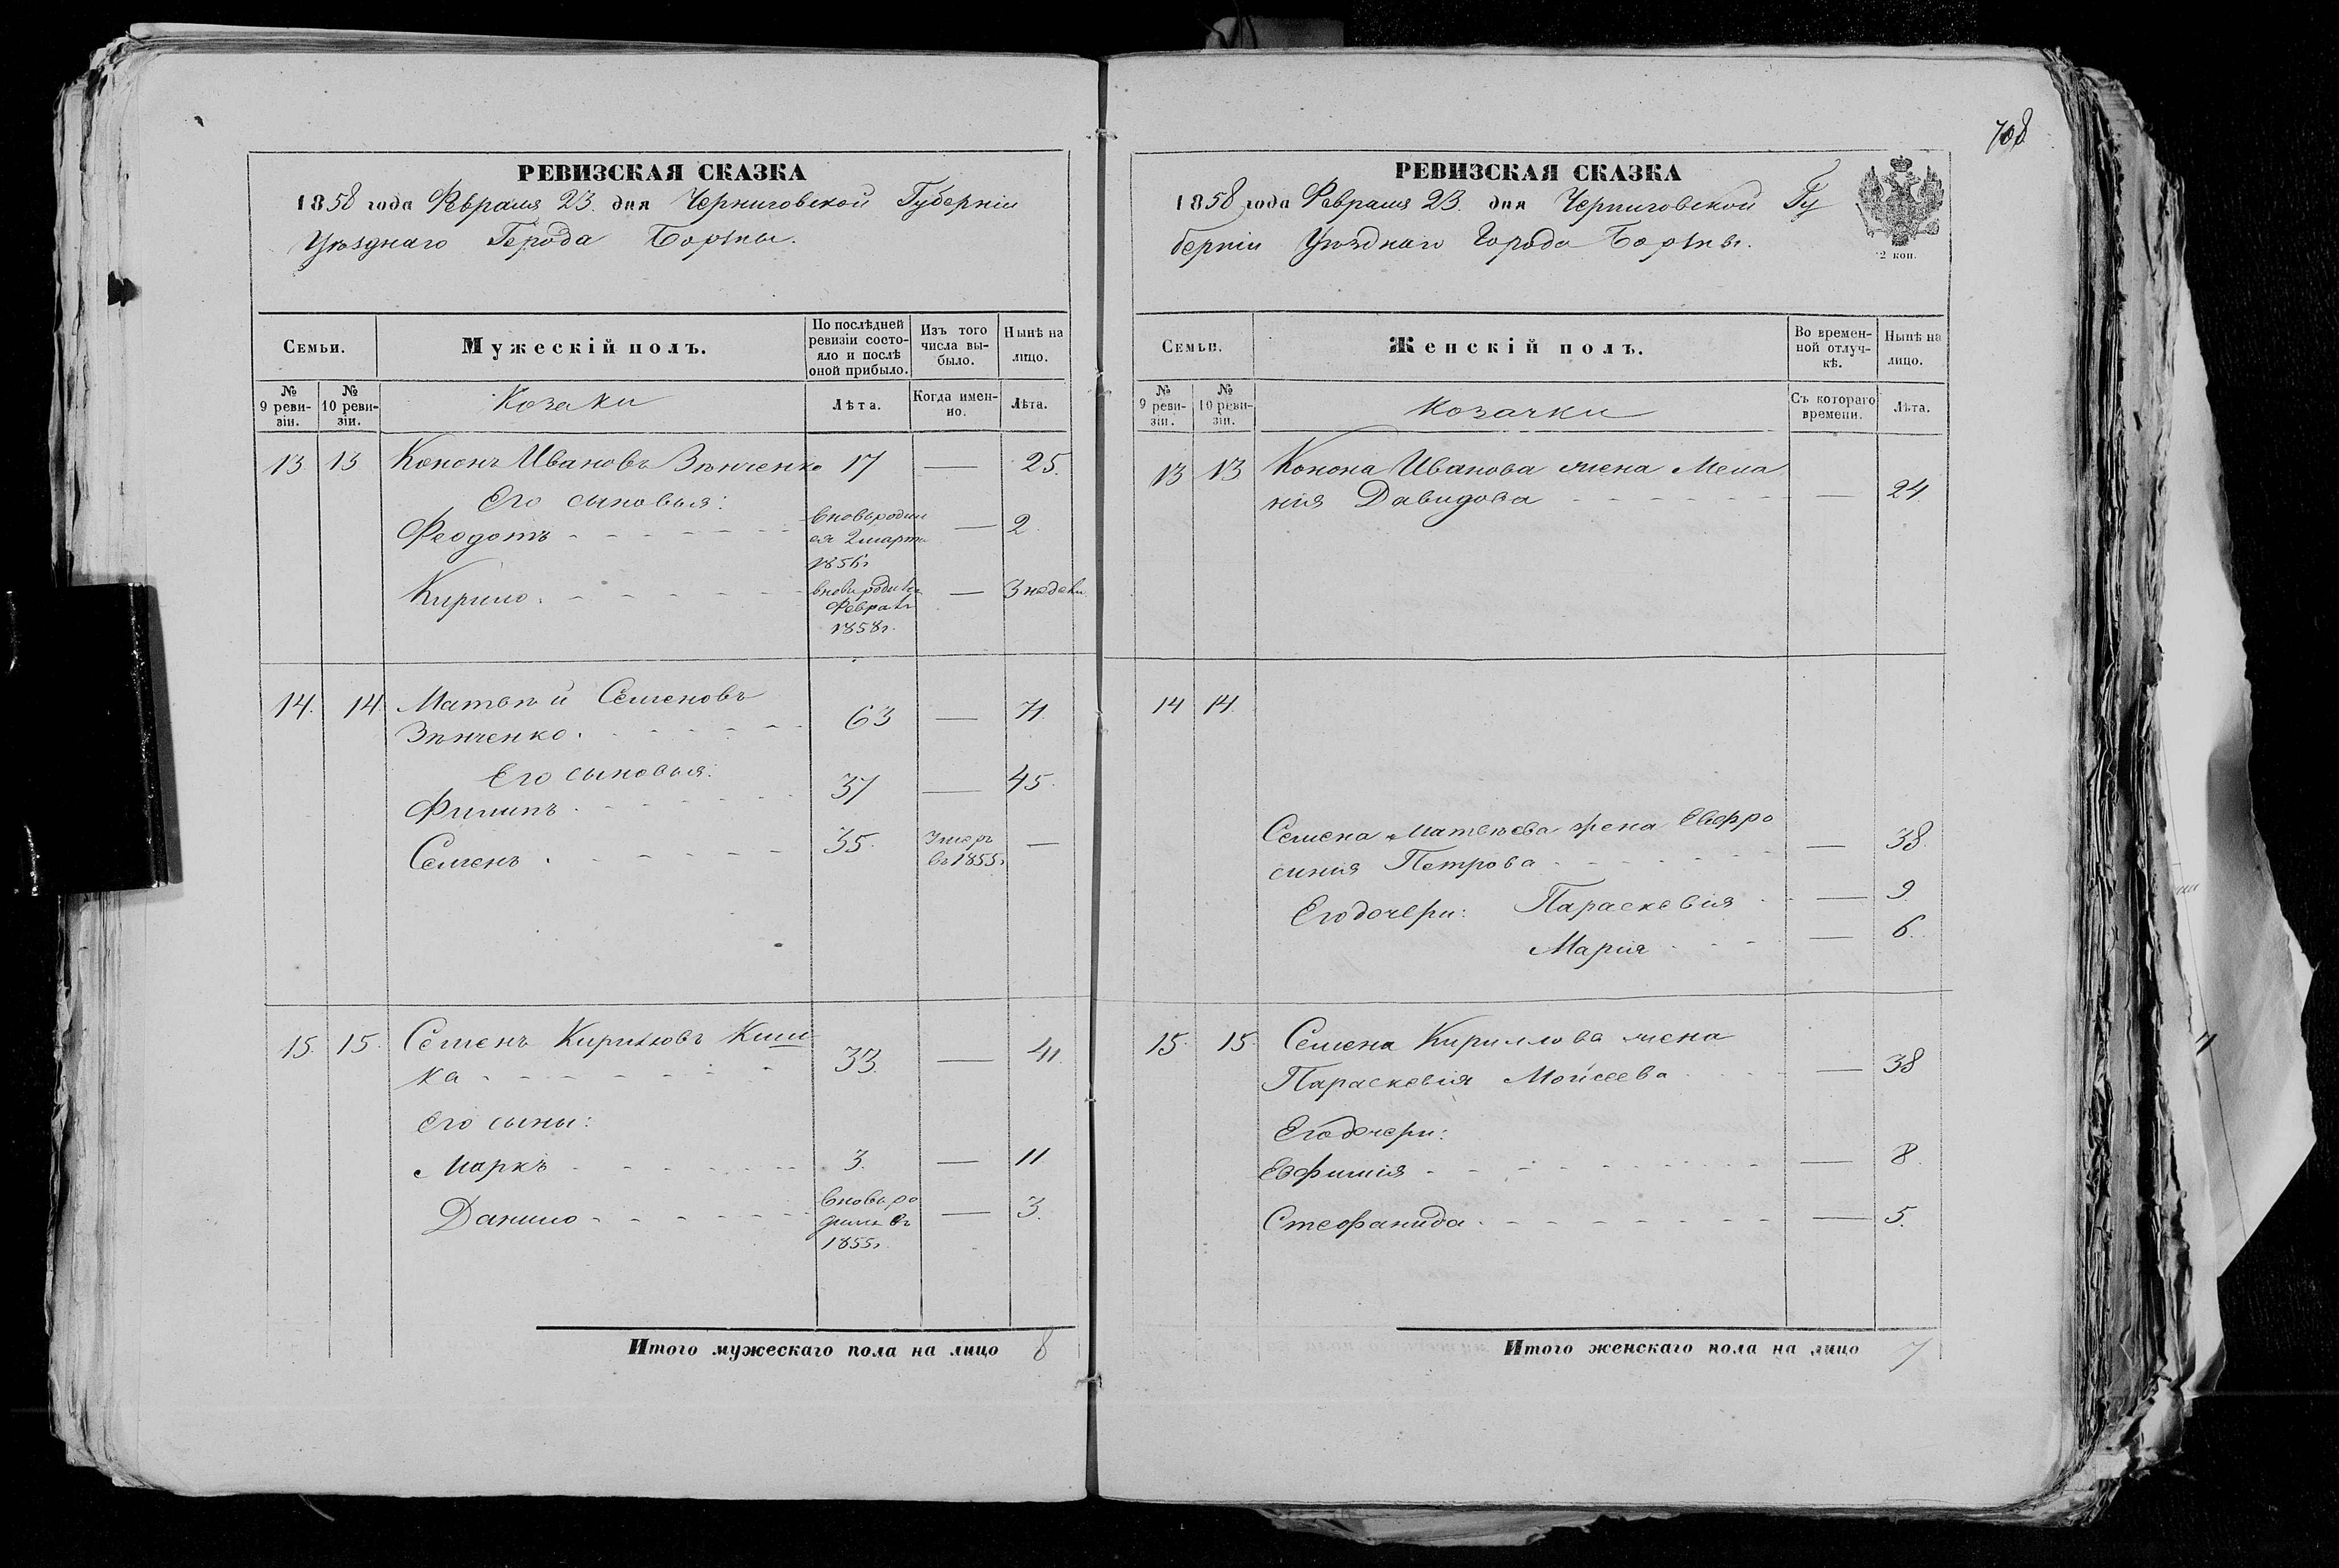 708
РЕВИЗСКАЯ СКАЗКА
1858 года Февраля 23. дня Черниговской Губерніи
Уѣзднаго Города Борзны.
Семьи.
Мужескій полъ.
По послѣдней ревизіи состояло и послѣ оной прибыло.
Изъ того числа выбыло.
Нынѣ на лицо.
№ 9 ревизіи.
№ 10 ревизіи.
Козаки
Лѣта.
Когда именно.
Лѣта.
13 13 Кононъ Ивановъ Зѣнченко 17 — 25.
Его сыновья:
Феодотъ вновь родил — 2
ся 2 марта
1856г
Кирило. вновь родился — 3 недели
Февраля
1858г.
14. 14 Матвѣй Семеновъ
Зѣнченко. 63 — 71.
Его сыновья:
Филипъ 37 — 45.
Семенъ. 35. Умеръ —
въ 1855г
15. 15. Семенъ Кириловъ Киш
ка 33. — 41.
Его сыны:
Маркъ 3. — 11
Данило вновь ро — 3.
дился въ
1855г.
Итого мужескаго пола на лицо 8
РЕВИЗСКАЯ СКАЗКА
1858 года Февраля 23. дня Черниговской Гу
берніи Уѣзднаго Города Борзны.
2 коп.
Семьи.
Женскій полъ.
Во временной отлучкѣ.
Нынѣ на лицо.
№ 9 ревизіи.
№ 10 ревизіи.
Козачки
Съ котораго времени.
Лѣта.
13 13 Конона Иванова жена Мела
нія Давидова — 24.
14 14.
Семена Матвѣева жена Евфро
синия Петрова — 38.
Его дочери: Параскевія — 9
Марія — 6.
15. 15. Семена Кириллова жена
Параскевія Мойсеева — 38
Его дочери:
Евфимія — 8.
Стефанида — 5.
Итого женскаго пола на лицо 7